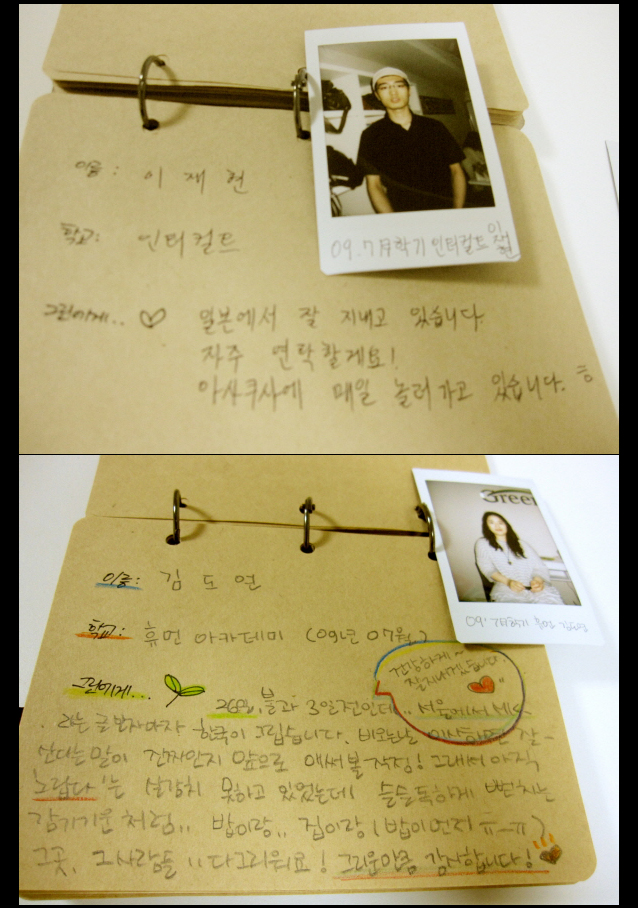 이름: 이 재 현
학교: 인터컬트
09.7月학기 인터컬트 이재현
그린에게.. ♡ 일본에서 잘 지내고 있습니다.
자주 연락할게요!
아사쿠사에 매일 놀러가고 있습니다. ㅎ
Green
09. 7月학기
이름: 김 도 연
학교: 휴먼 아카데미 (09년 07월)
건강하게~
잘지내겠습니다.
그린에게... 26일, 불과 3일전인데.. 서울에서
라는 글 받자마자 한국이 그립습니다. 비오는날 이사하면 잘~
산다는 말이 진짜인지 앞으로 애써볼 작정! 그래서 아직
'느낌다'는 실감치 못하고 있었는데 슬슬독하게 뻗치는
감기기운처럼.. 밥이랑.. 집이랑 (밥이먼저 ㅠ-ㅠ)
그곳, 그사람들.. 다그리워요! 그리운만큼 감사합니다!